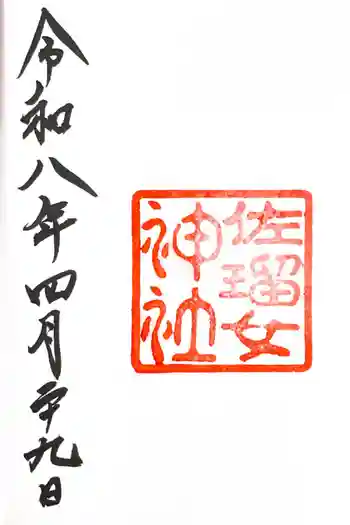 佐瑠女
神社
令和八年四月二十九日